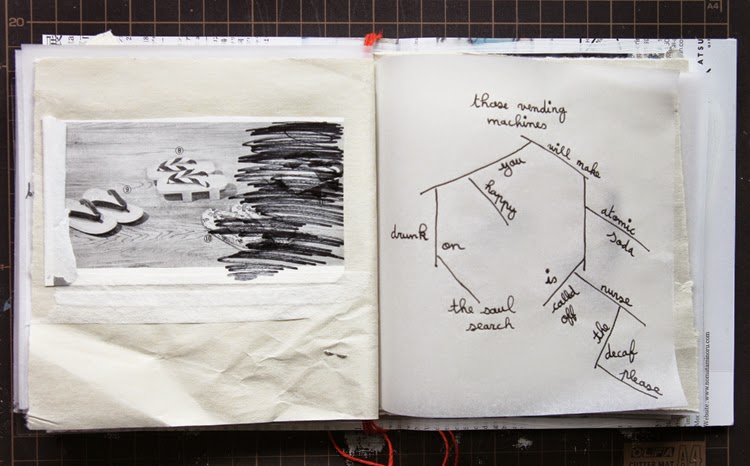 20
A4
ATSU
⑧
⑨
⑩
those vending
machines
will make
you
happy
atomic
soda
drunk
on
is
called
off
nurse
the soul
search
the
decaf
please
OLFA
A4